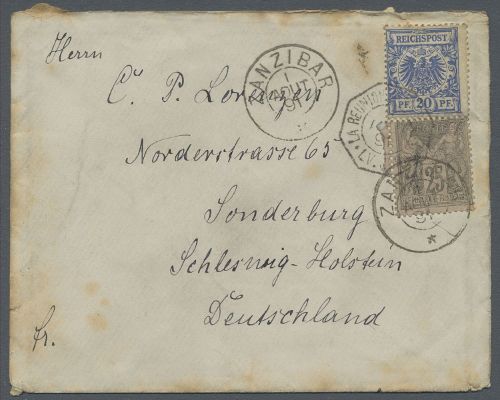 Herrn
C. P. Lorenzen
Norderstrasse 65
Sonderburg
Schleswig-Holstein
Deutschland
fr.
ZANZIBAR
1
AOUT
91
REICHSPOST
PF. 20 PF.
LA REUNION
LV.
25
ZAN
91